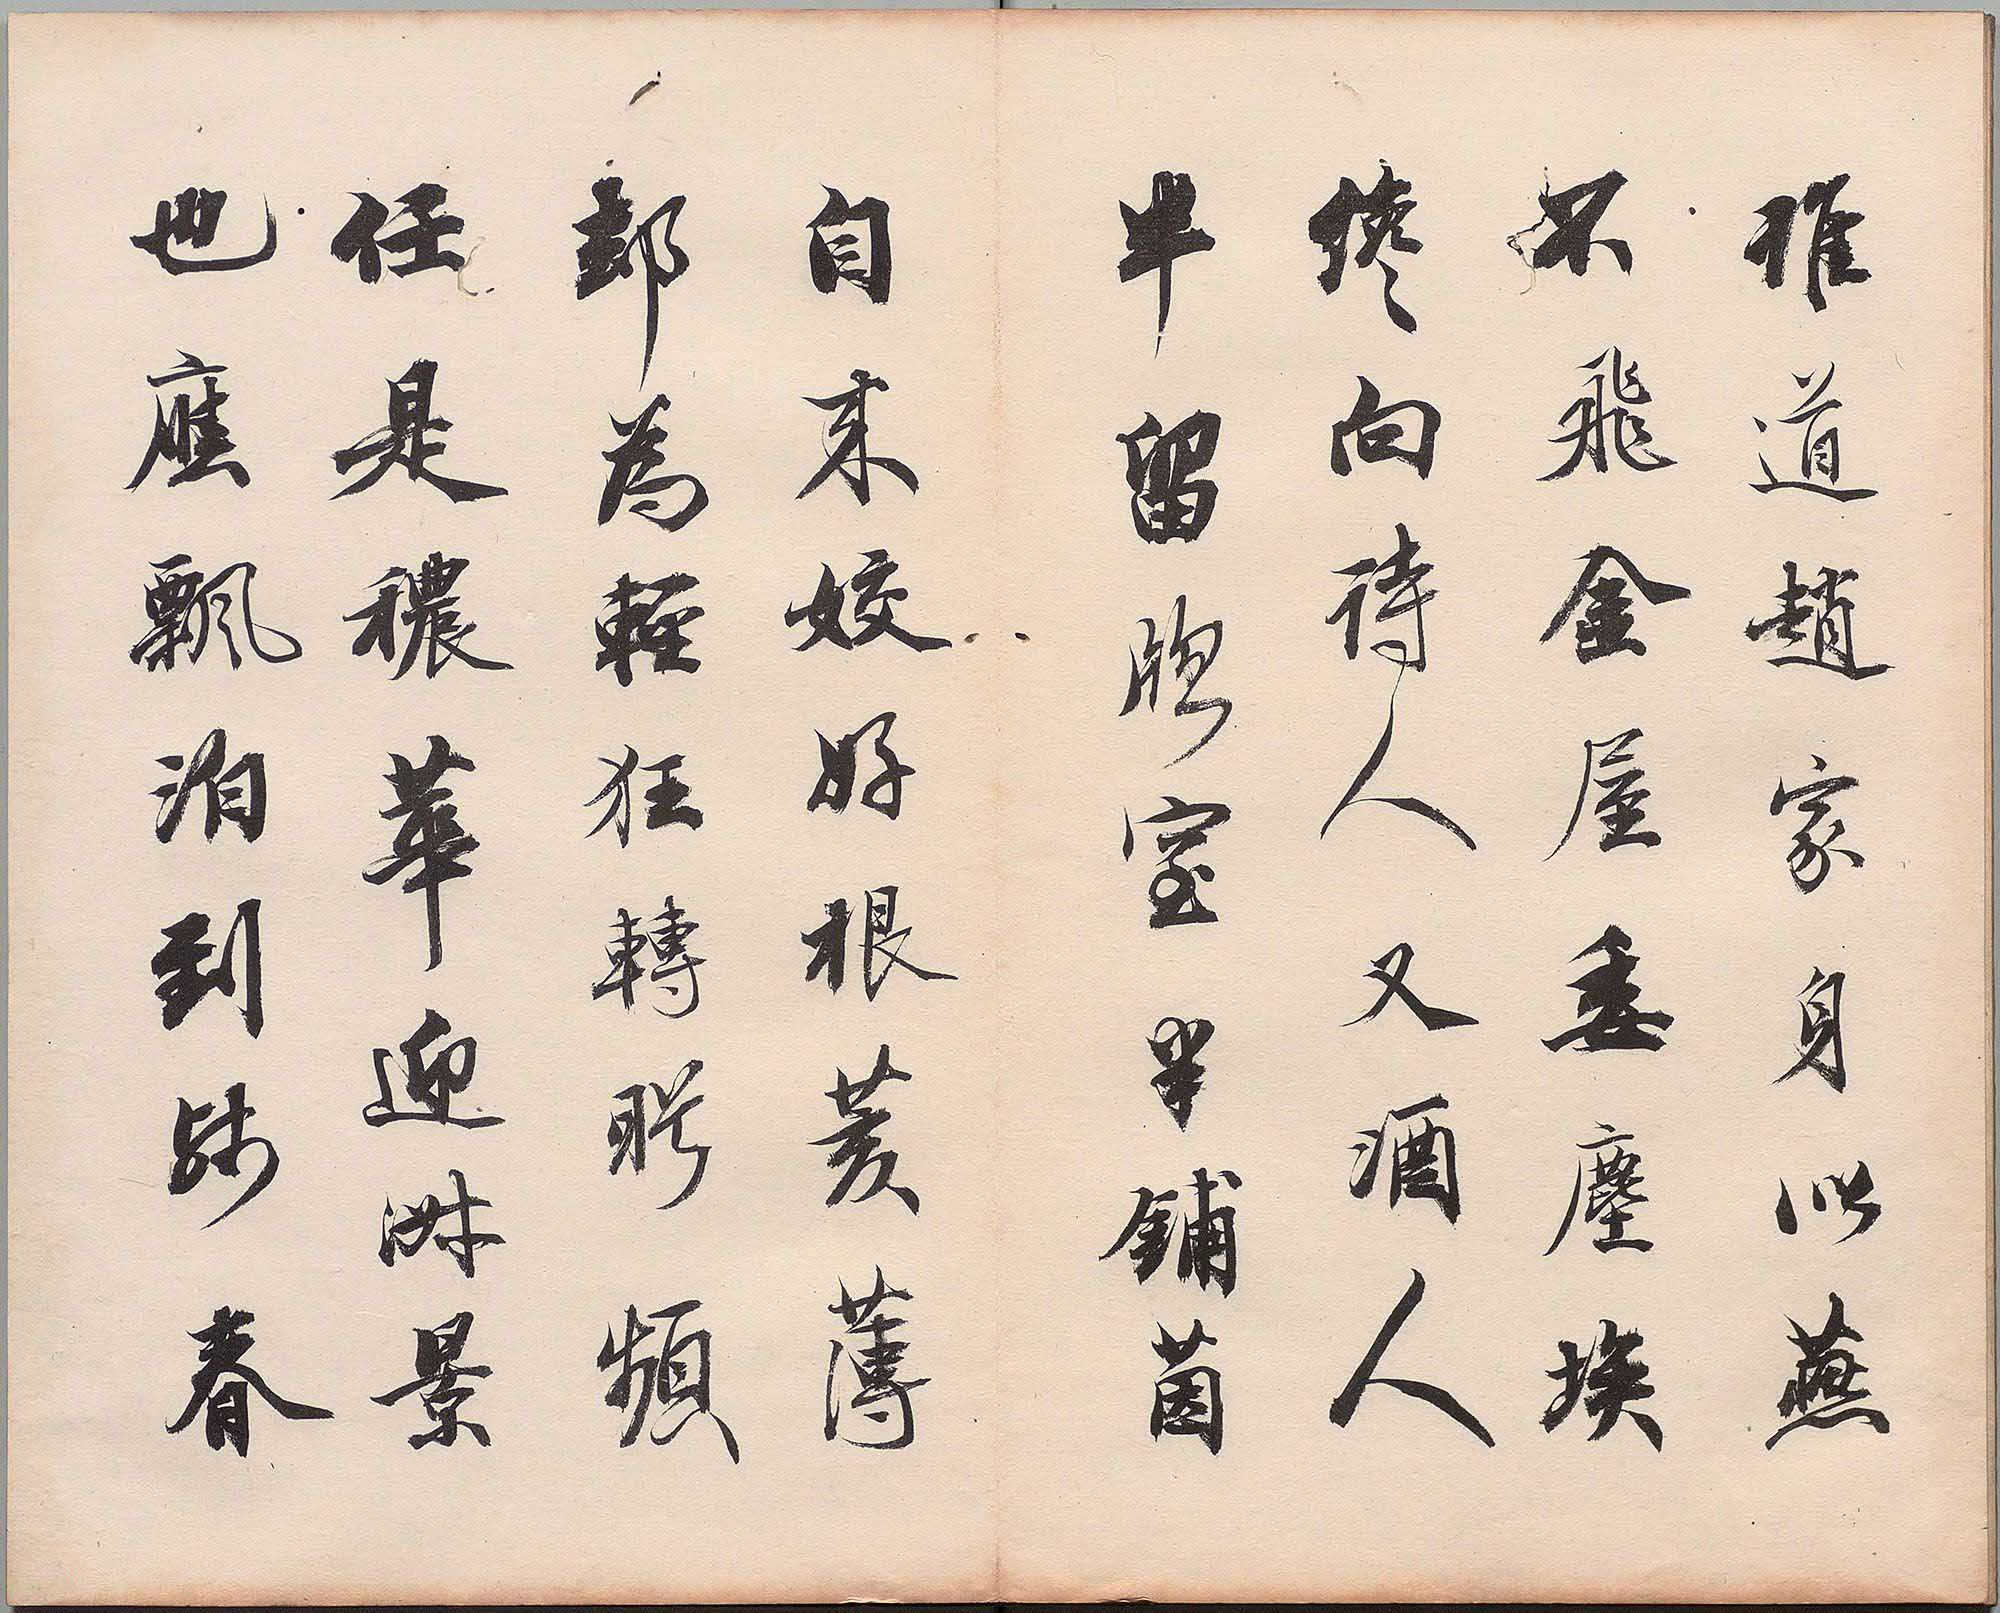 誰道趙家身似燕
不飛金屋委塵埃
纔向詩人又酒人
半留室半鋪茵
自來姣好根荄薄
却為輕狂轉眄頻
任是穠華迎淑景
也應飄泊到殘春